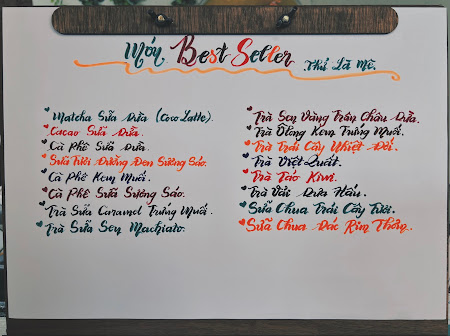 Món Best Seller Thử Là Mê.
Matcha Sữa Dừa (Coco Latte).
Cacao Sữa Dừa.
Cà Phê Sữa Dừa.
Sữa Tươi Đường Đen Sương Sáo.
Cà Phê Kem Muối.
Cà Phê Sữa Sương Sáo.
Trà Sữa Caramel Trứng Muối.
Trà Sữa Sen Machiato.
Trà Sen Vàng Trân Châu Dừa.
Trà Ôlong Kem Trứng Muối.
Trà Trái Cây Nhiệt Đới.
Trà Việt Quất.
Trà Táo Kiwi.
Trà Vải Dưa Hấu.
Sữa Chua Trái Cây Tươi.
Sữa Chua Đác Rim Thơm.